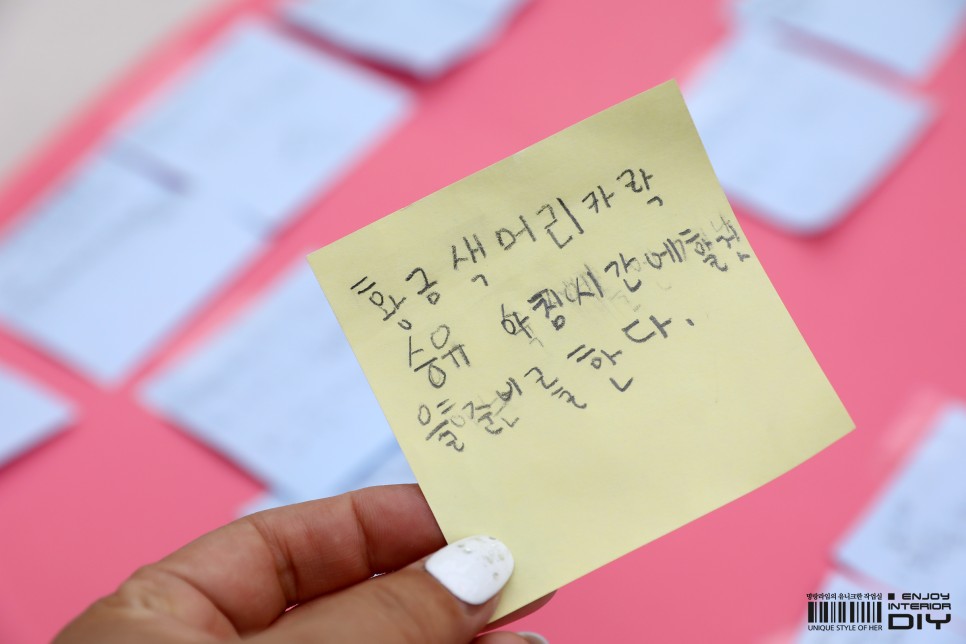 황금색머리카락
승유 약정시간에할것
을준비를한다.
명랑라임의 유니크한 작업실
UNIQUE STYLE OF HER
ENJOY
INTERIOR
DIY